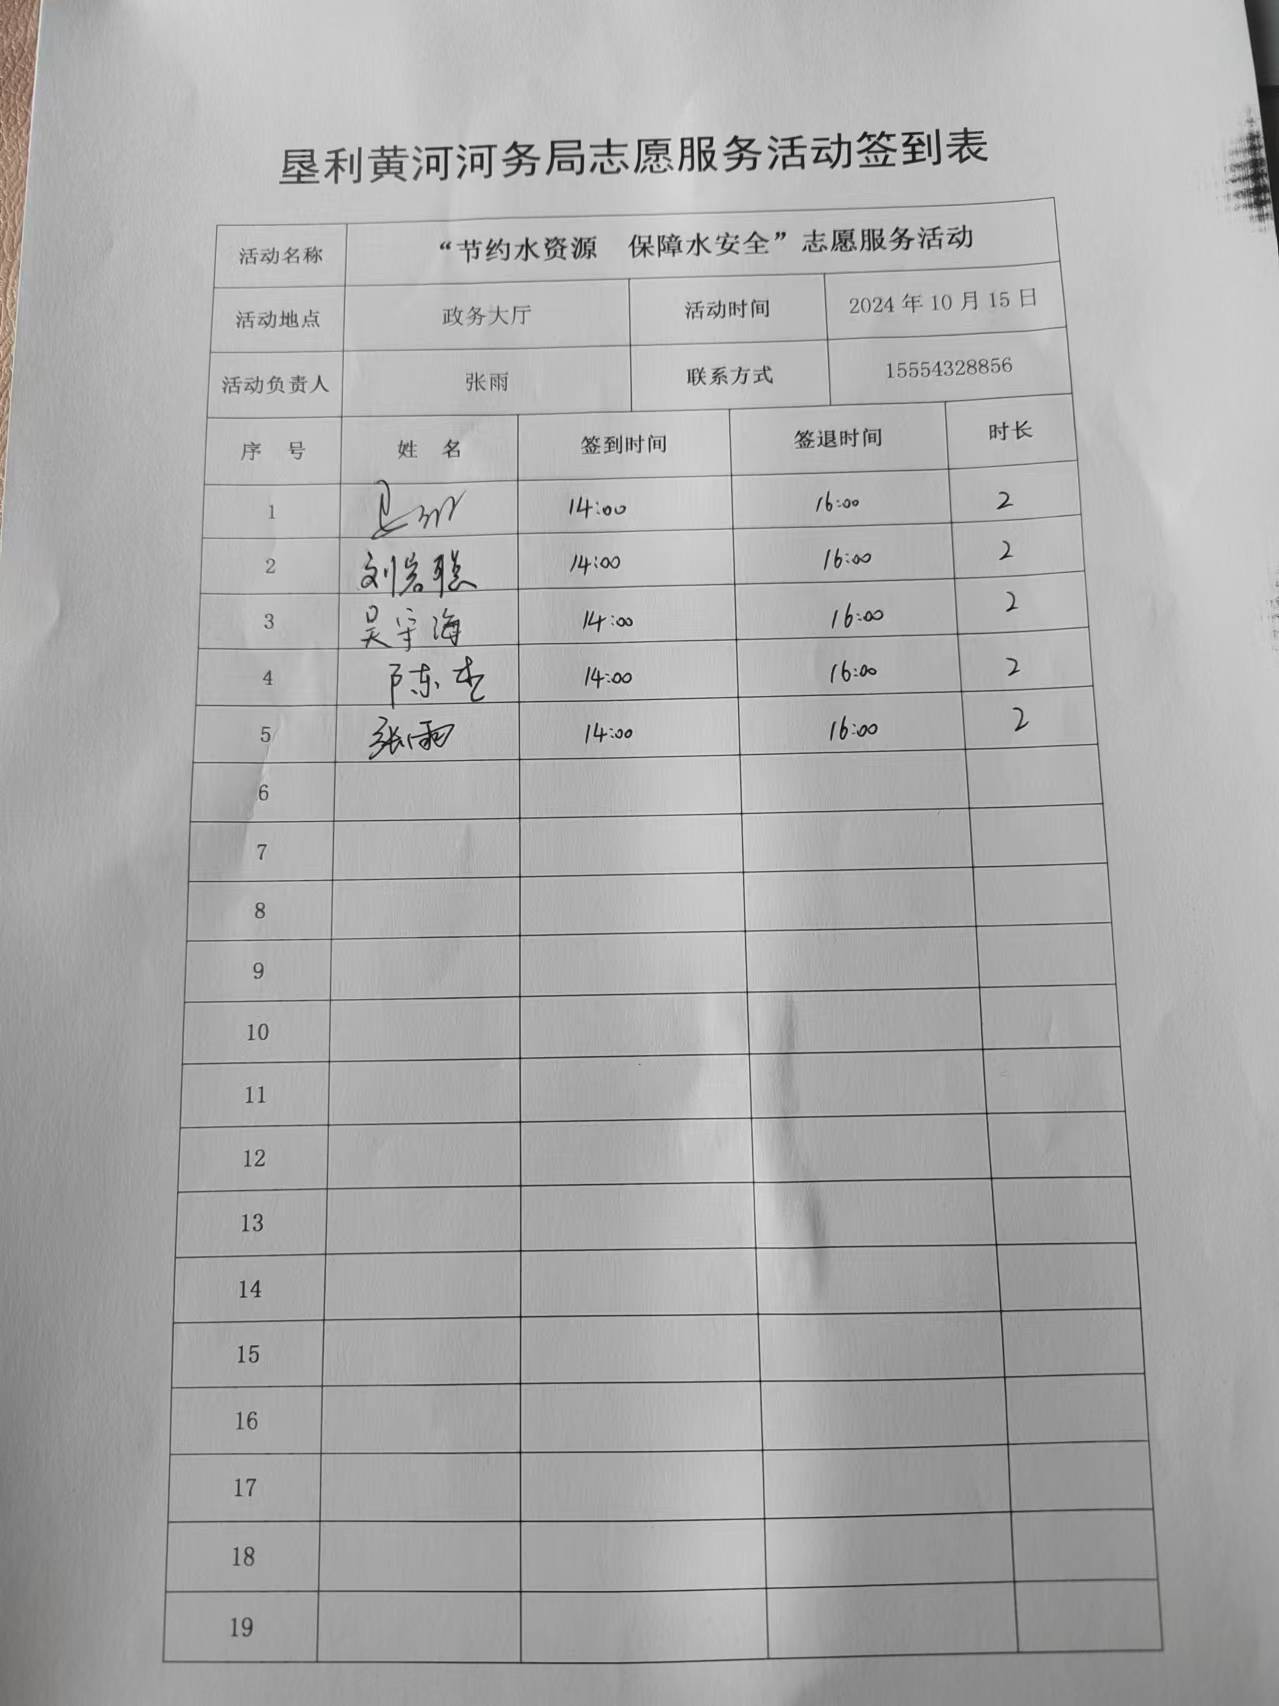 垦利黄河河务局志愿服务活动签到表
活动名称 “节约水资源 保障水安全”志愿服务活动
活动地点 政务大厅 活动时间 2024年10月15日
活动负责人 张雨 联系方式 15554328856
序 号 姓 名 签到时间 签退时间 时长
1 14:00 16:00 2
2 刘岩聪 14:00 16:00 2
3 吴守海 14:00 16:00 2
4 陈杰 14:00 16:00 2
5 张雨 14:00 16:00 2
6
7
8
9
10
11
12
13
14
15
16
17
18
19